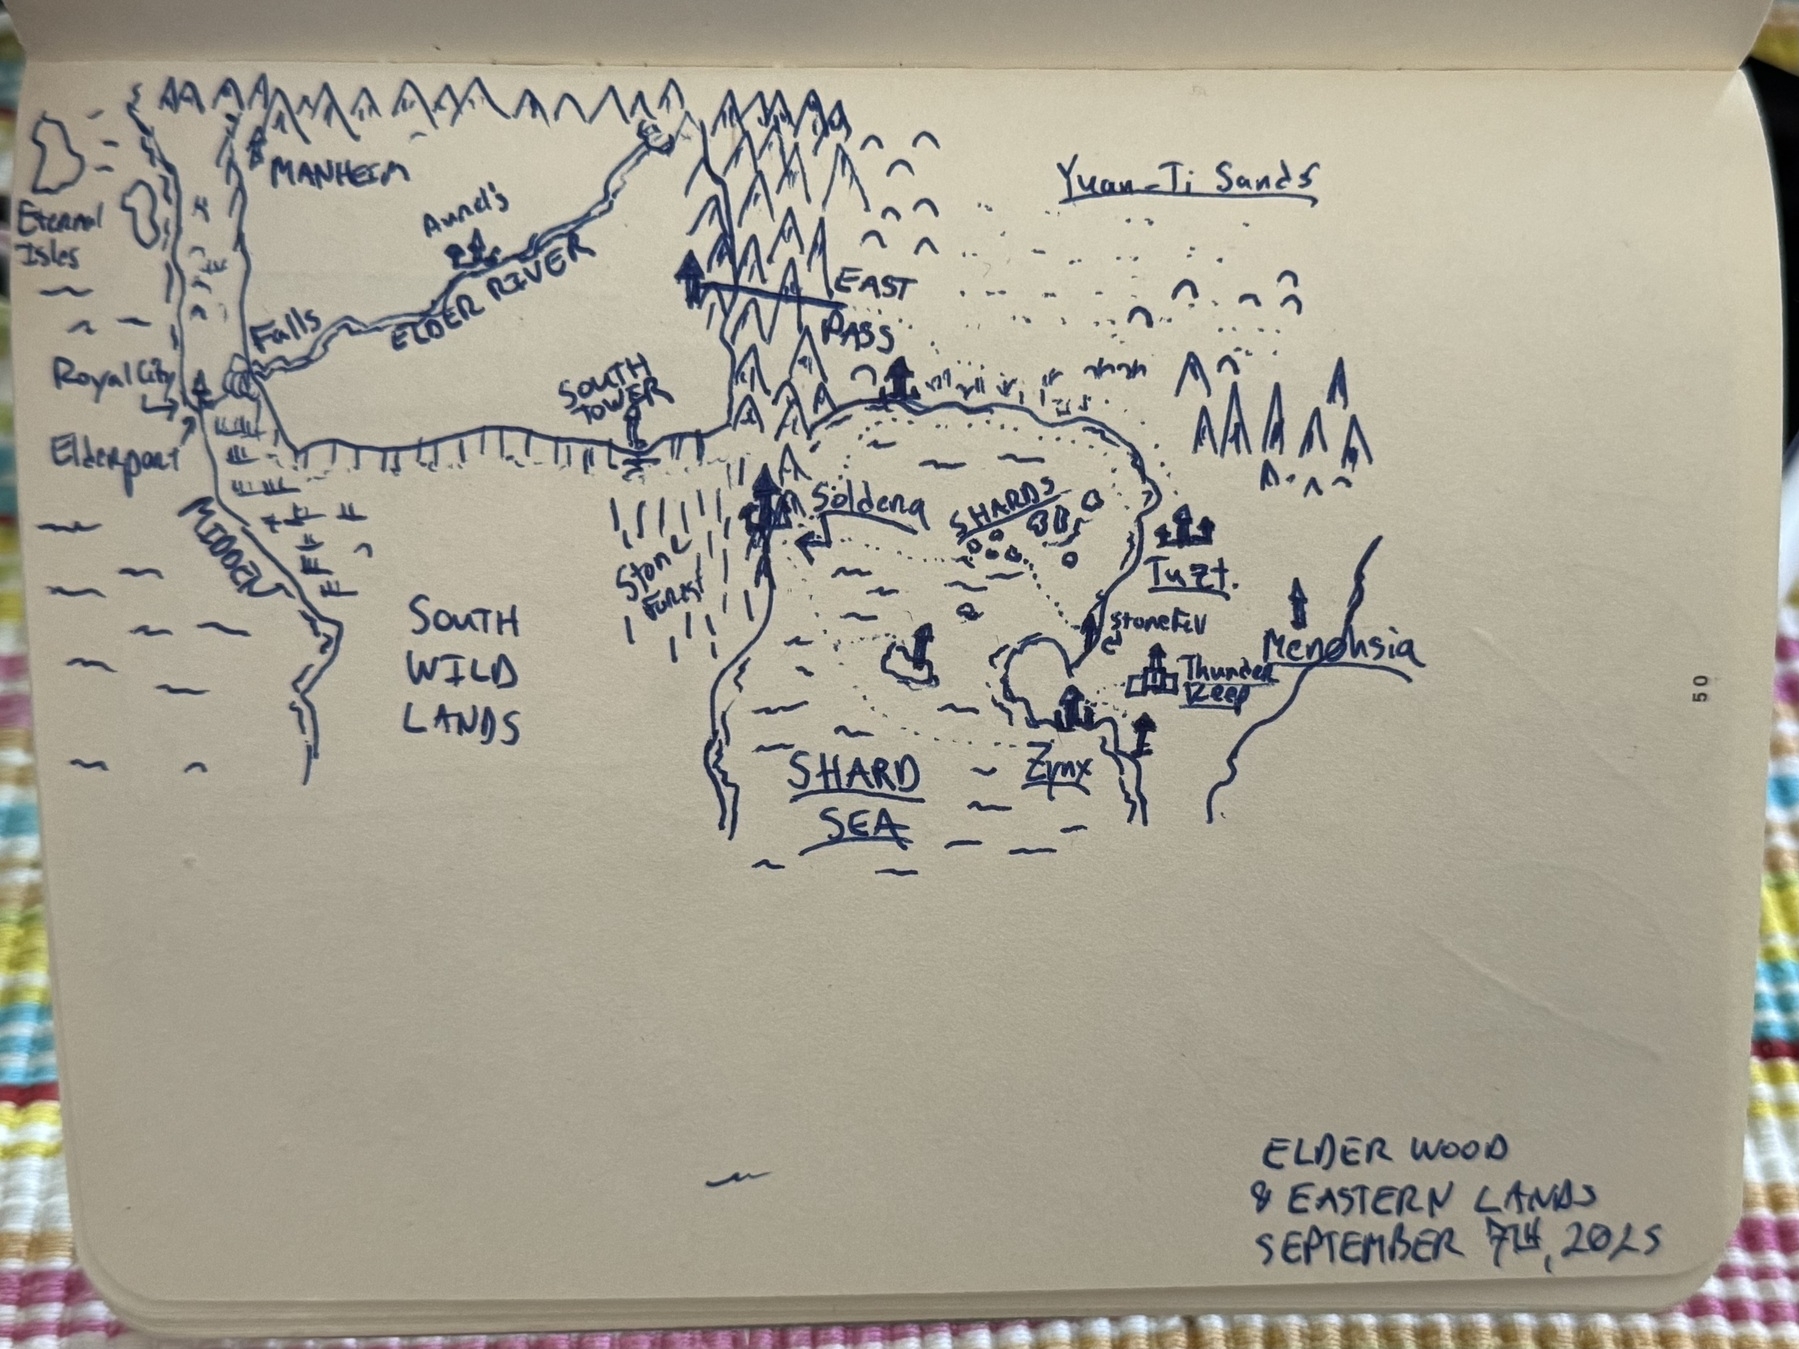 MANHEIM
Yuan-Ti Sands
Eternal
Isles
ELDER RIVER
EAST
PASS
Falls
Royal City
SOUTH
TOWER
Elderport
Soldena
SHARDS
STONE
FOREST
MIDDEN
Tuzt.
SOUTH
WILD
LANDS
Menohsia
Thunder
Keep
Zynx
SHARD
SEA
50
ELDER WOOD
& EASTERN LANDS
SEPTEMBER 7TH, 2025